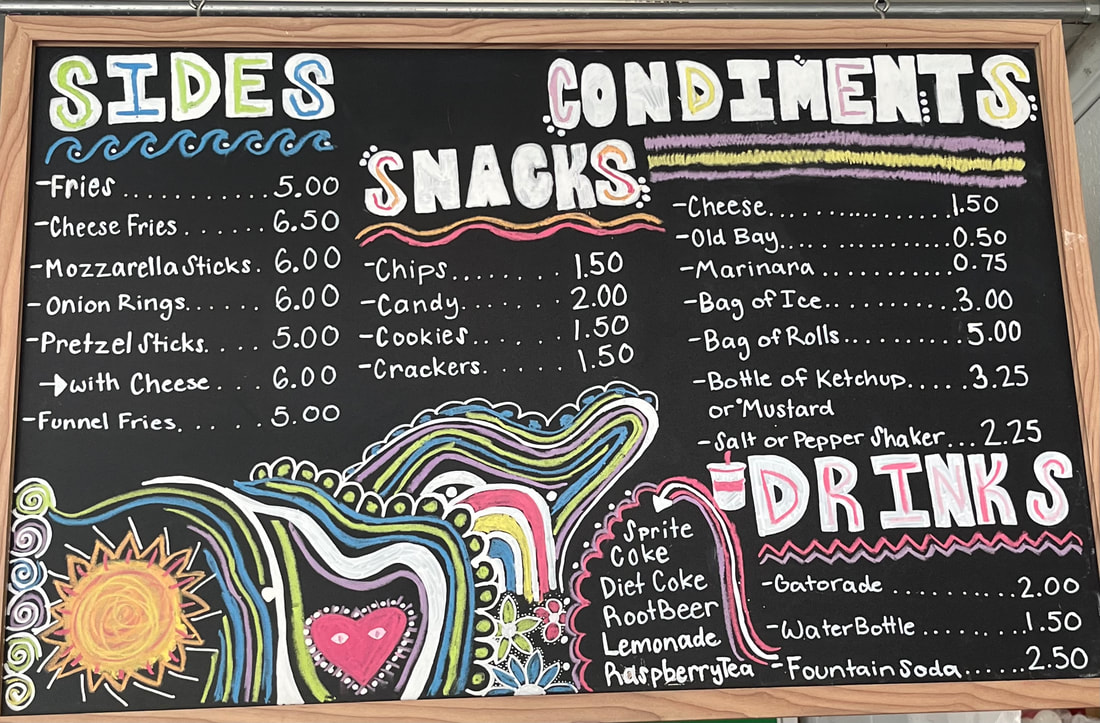 SIDES
-Fries............5.00
-Cheese Fries......6.50
-Mozzarella Sticks.6.00
-Onion Rings......6.00
-Pretzel Sticks....5.00
→with Cheese....6.00
-Funnel Fries.....5.00
SNACKS
-Chips........1.50
-Candy.......2.00
-Cookies......1.50
-Crackers......1.50
CONDIMENTS
-Cheese...................1.50
-Old Bay..................0.50
-Marinara............0.75
-Bag of Ice...........3.00
-Bag of Rolls..........5.00
-Bottle of Ketchup.....3.25
or Mustard
-Salt or Pepper Shaker...2.25
DRINKS
-Gatorade............2.00
-Water Bottle........1.50
-Fountain Soda......2.50
Sprite
Coke
Diet Coke
Root Beer
Lemonade
Raspberry Tea